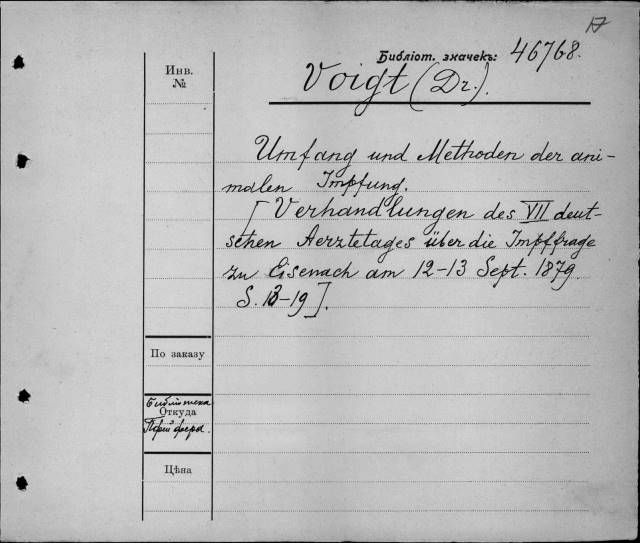 Библіот. значекъ: 46768.
Инв.
№
Voigt (Dr.).
Umfang und Methoden der ani-
malen Impfung.
[Verhandlungen des VII deut-
schen Aerztetages über die Impffrage
zu Eisenach am 12-13 Sept. 1879.
S. 13-19].
По заказу
Библіотека
Откуда
Цѣна